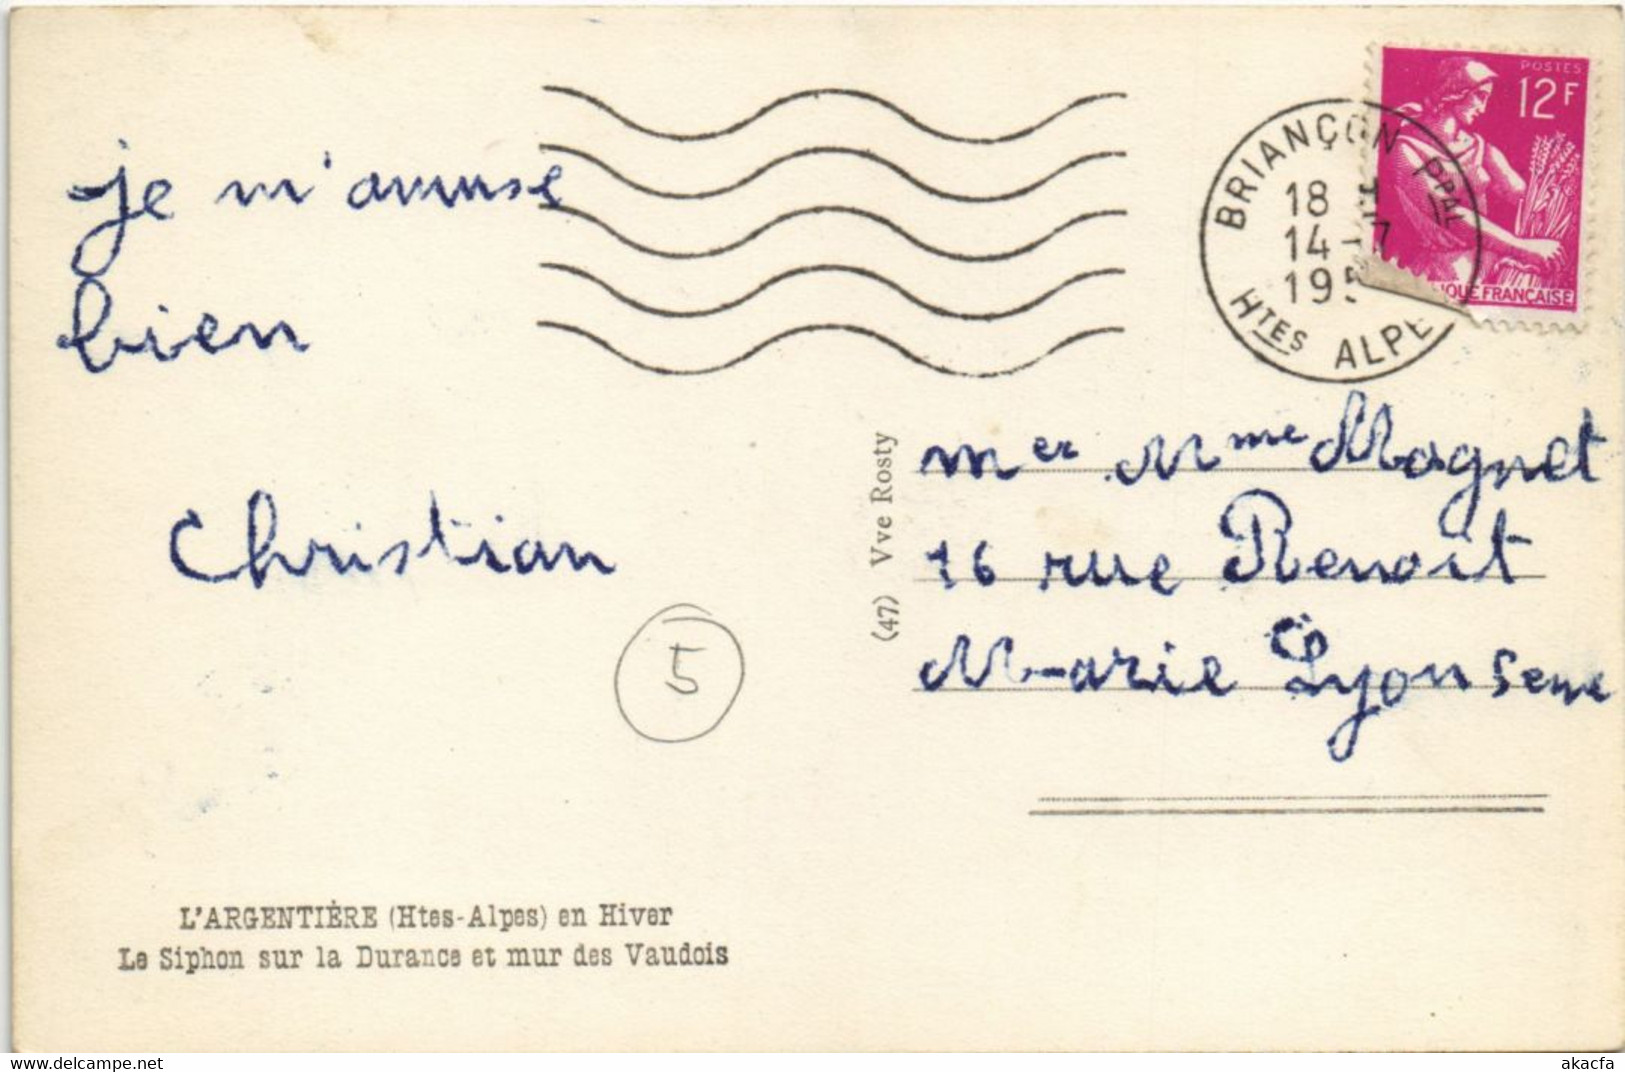 je m'amuse
bien
Christian
5
L'ARGENTIÈRE (Htes-Alpes) en Hiver
Le Siphon sur la Durance et mur des Vaudois
(47) Vve Rosty
POSTES
12F
IQUE FRANÇAISE
BRIANÇON PPAL
18 H
14-7
195
HTES ALPE
Mer Mme Magnet
16 rue Renoit
Marie Lyon 5eme
www.delcampe.net
akacfa